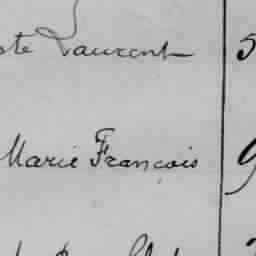 ste Laurent 5
Marie François 9